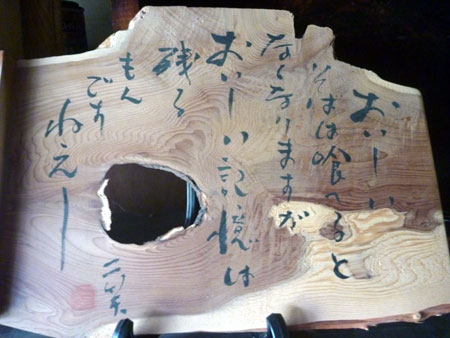 おいしい
そばは喰べると
なくなりますが
おいしい記憶は
残る
もん
です
ねえー